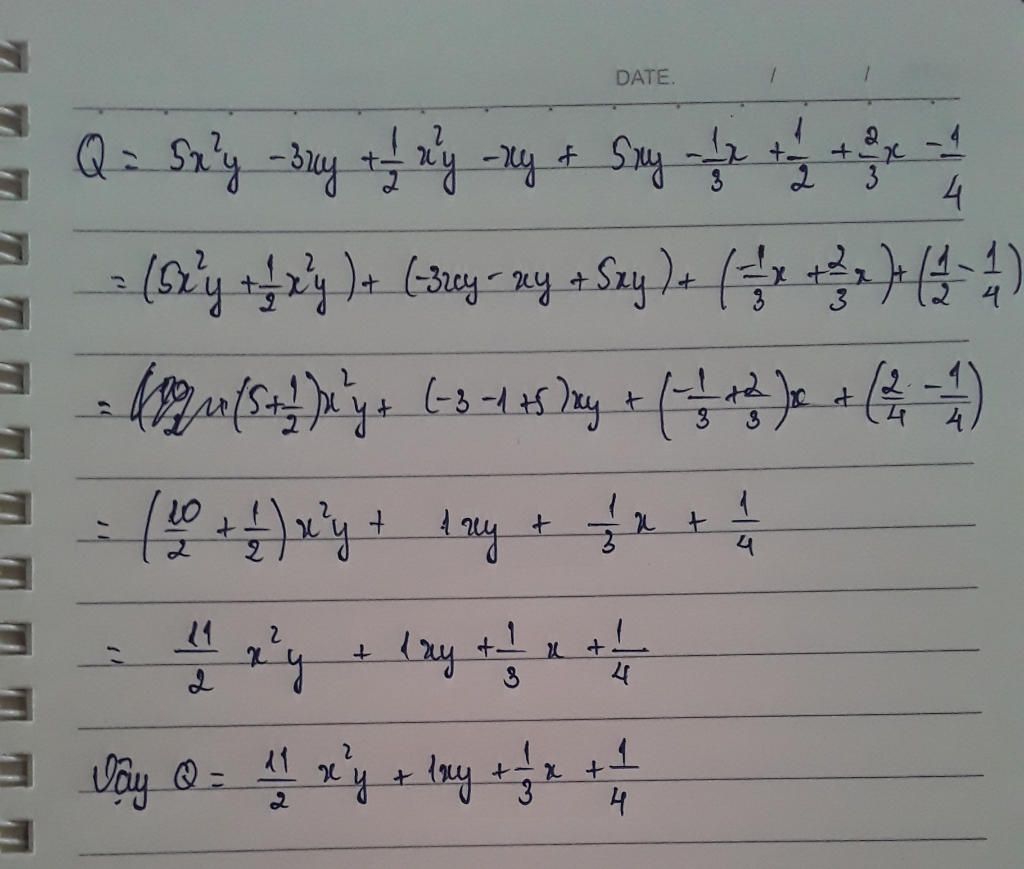 DATE. / /
Q = 5x²y - 3xy + 1/2 x²y - xy + 5xy - 1/3 x + 1/2 + 2/3 x - 1/4
= (5x²y + 1/2 x²y) + (-3xy - xy + 5xy) + (-1/3 x + 2/3 x) + (1/2 - 1/4)
= (5 + 1/2)x²y + (-3 - 1 + 5)xy + (-1/3 + 2/3)x + (2/4 - 1/4)
= (10/2 + 1/2)x²y + 1xy + 1/3 x + 1/4
= 11/2 x²y + 1xy + 1/3 x + 1/4
Vậy Q = 11/2 x²y + 1xy + 1/3 x + 1/4